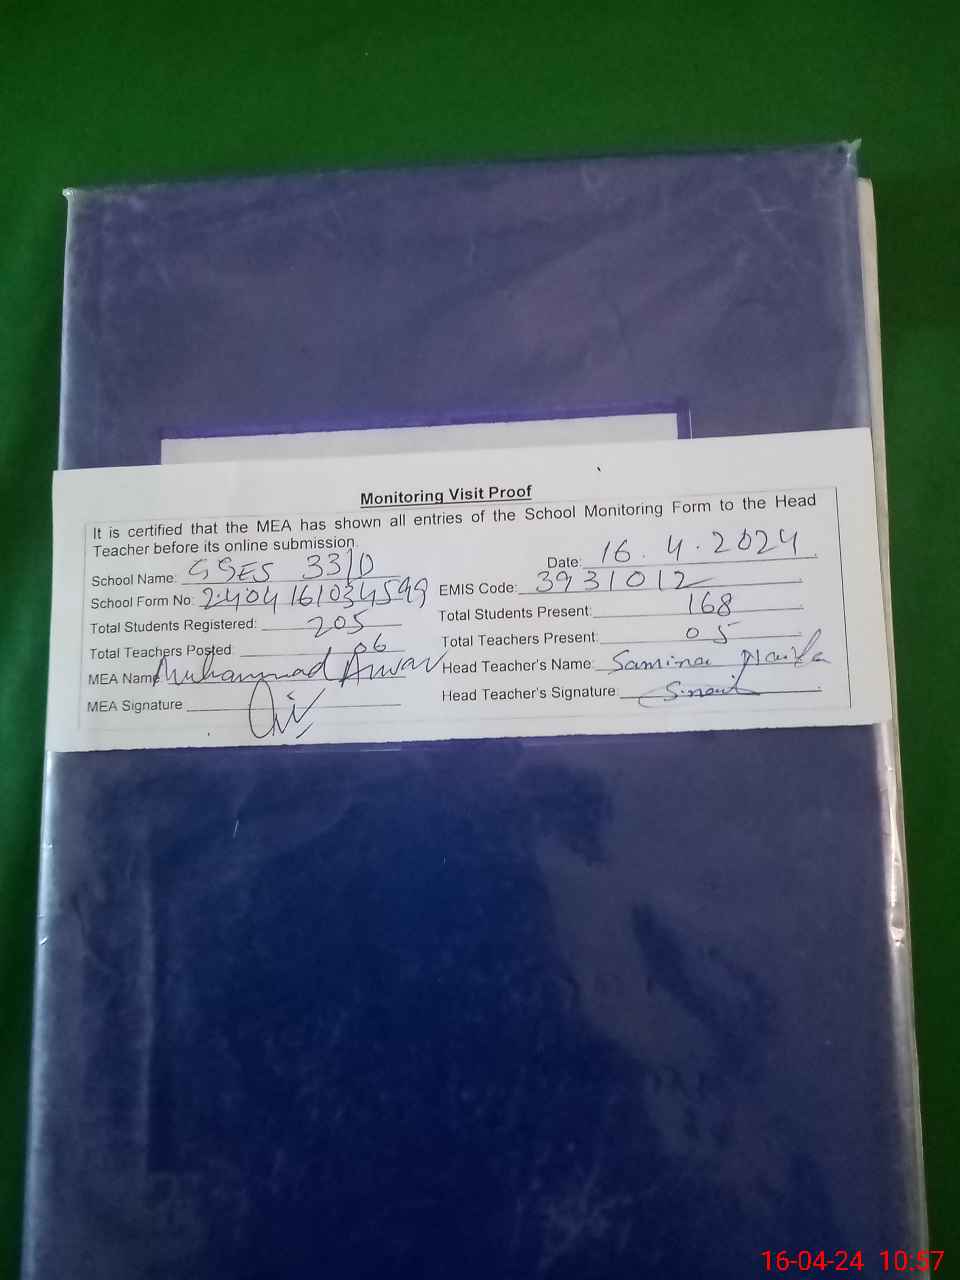 Monitoring Visit Proof
It is certified that the MEA has shown all entries of the School Monitoring Form to the Head
Teacher before its online submission.
School Name: GGES 331D Date: 16.4.2024
School Form No: 2404161034599 EMIS Code: 3931012
Total Students Registered: 205 Total Students Present: 168
Total Teachers Posted: 06 Total Teachers Present: 05
MEA Name Muhammad Anwar Head Teacher's Name: Samina
MEA Signature Head Teacher's Signature:
16-04-24 10:57